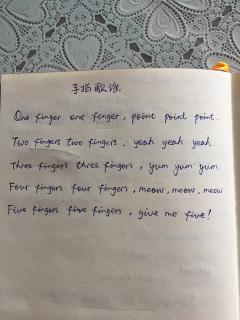 手指歌谣
One finger one finger, point point point.
Two fingers two fingers, yeah yeah yeah.
Three fingers three fingers, yum yum yum.
Four fingers four fingers, meow, meow, meow
Five fingers five fingers, give me five!